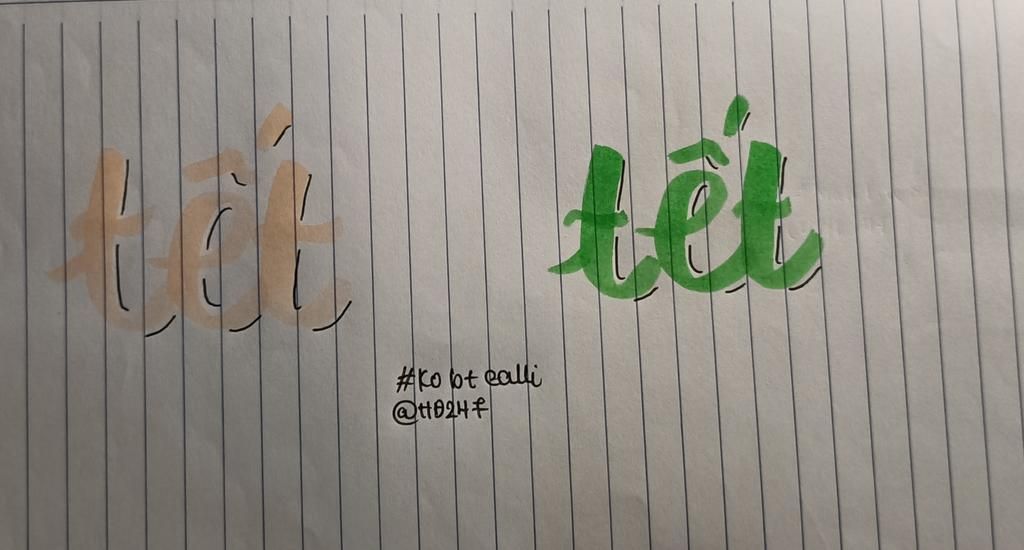 tết tết
#Ko bt calli
@HB24F